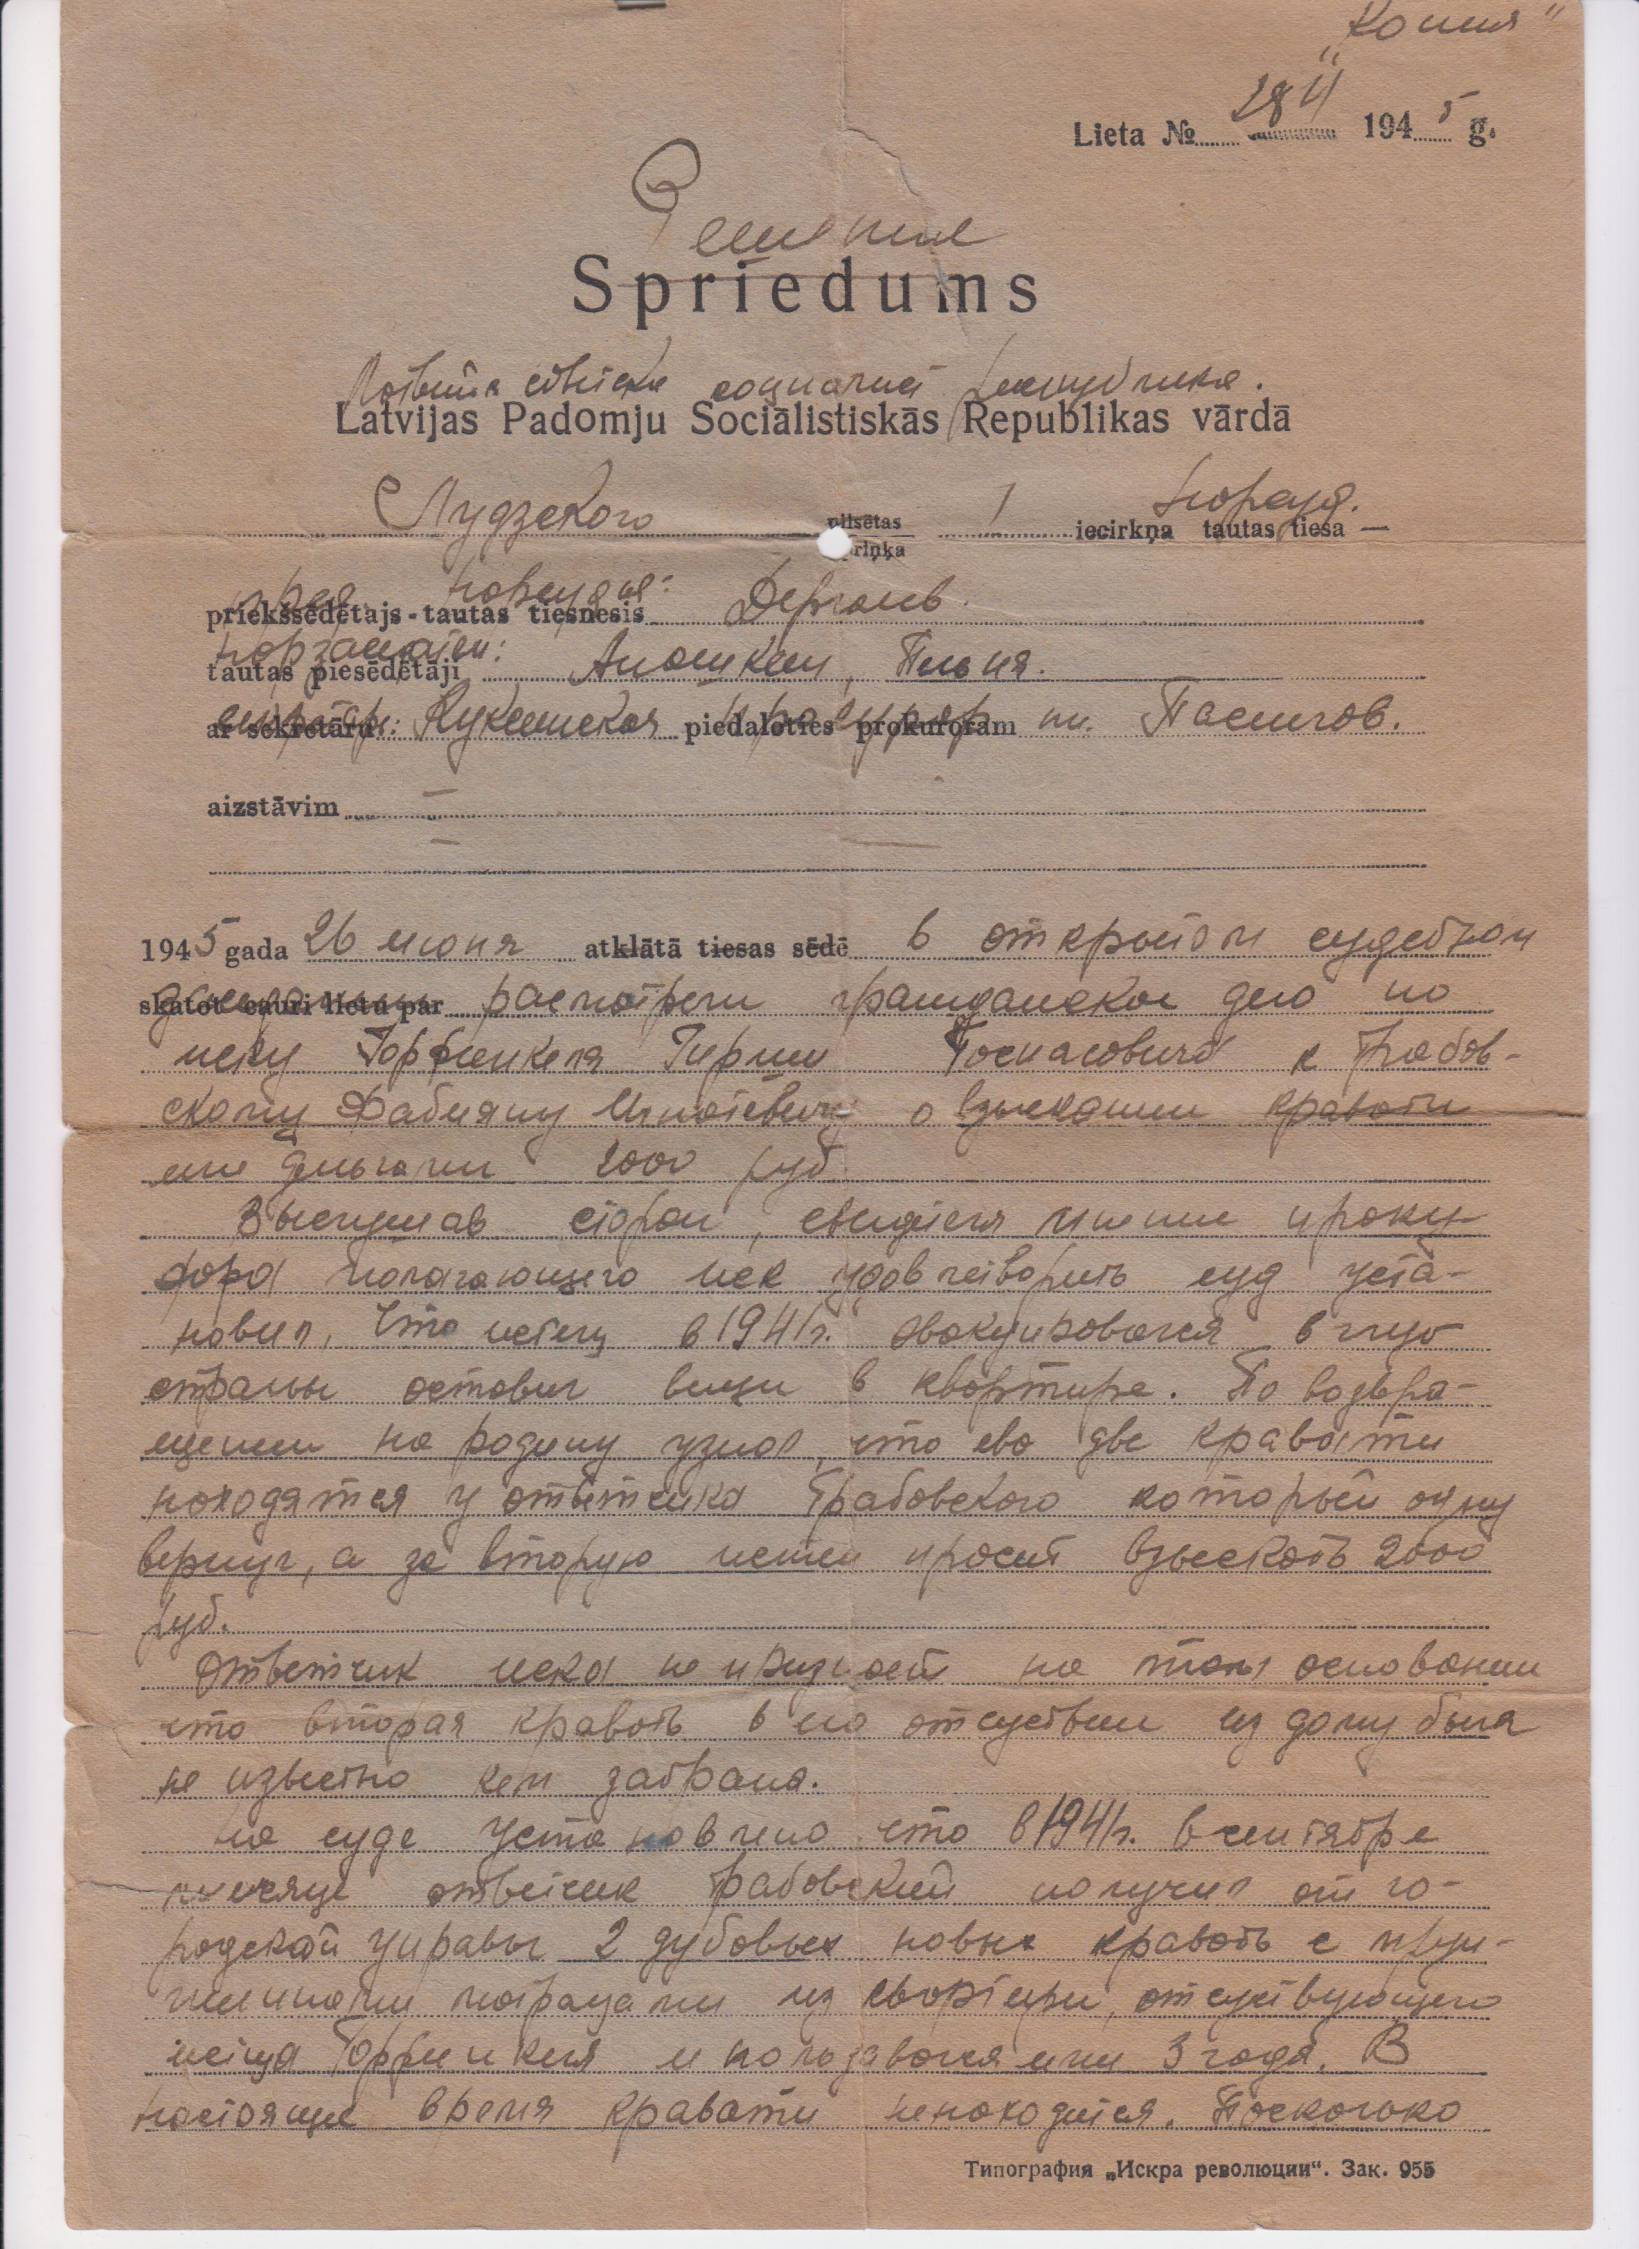 „Копия"
Lieta № 284 1945 g.
Решение
Spriedums
Латвийск социалист республика.
Latvijas Padomju Sociālistiskās Republikas vārdā
Лудзского pilsētas 1 нарсуд.
apriņķa iecirkņa tautas tiesa —
пред. нарсудья:
priekšsēdētajs-tautas tiesnesis
нарзаседатели:
tautas piesēdētāji Аношкин,
секретарь: прокурор
ar sekretāru piedaloties prokuroram пи.
aizstāvim —
1945 gada 26 июня atklātā tiesas sēdē в открытом судебном
заседании
skatot cauri lietu par рассмотрел гражданское дело по
иску Горфинкеля Гирши к Грабов-
скому Фабияну Игнатевичу о взыскании кравати
или деньгами 2000 руб.
Выслушав сторон, свидетеля мнение проку-
рора полагающего иск удовлетворить суд уста-
новил, что истец в 1941 г. эвакуировался в глуб
страны оставил вещи в квартире. По возвра-
щении на родину узнал, что ево две кравати
находятся у ответчика Грабовского который одну
вернул, а за вторую истец просит взыскать 2000
руб.
Ответчик иска не признает на том основании
что вторая кравать в его отсуствии из дому была
не известно кем забрана.
На суде установлено что в 1941 г. в сентябре
месяце ответчик Грабовский получил от го-
родской управы 2 дубовых новых кравать с пру-
жинными матрацами из квартири, отсуствующего
истца Горфинкеля и ползавался ими 3 года. В
настоящее время кравати ненаходится. Посколько
Типография „Искра революции“. Зак. 955